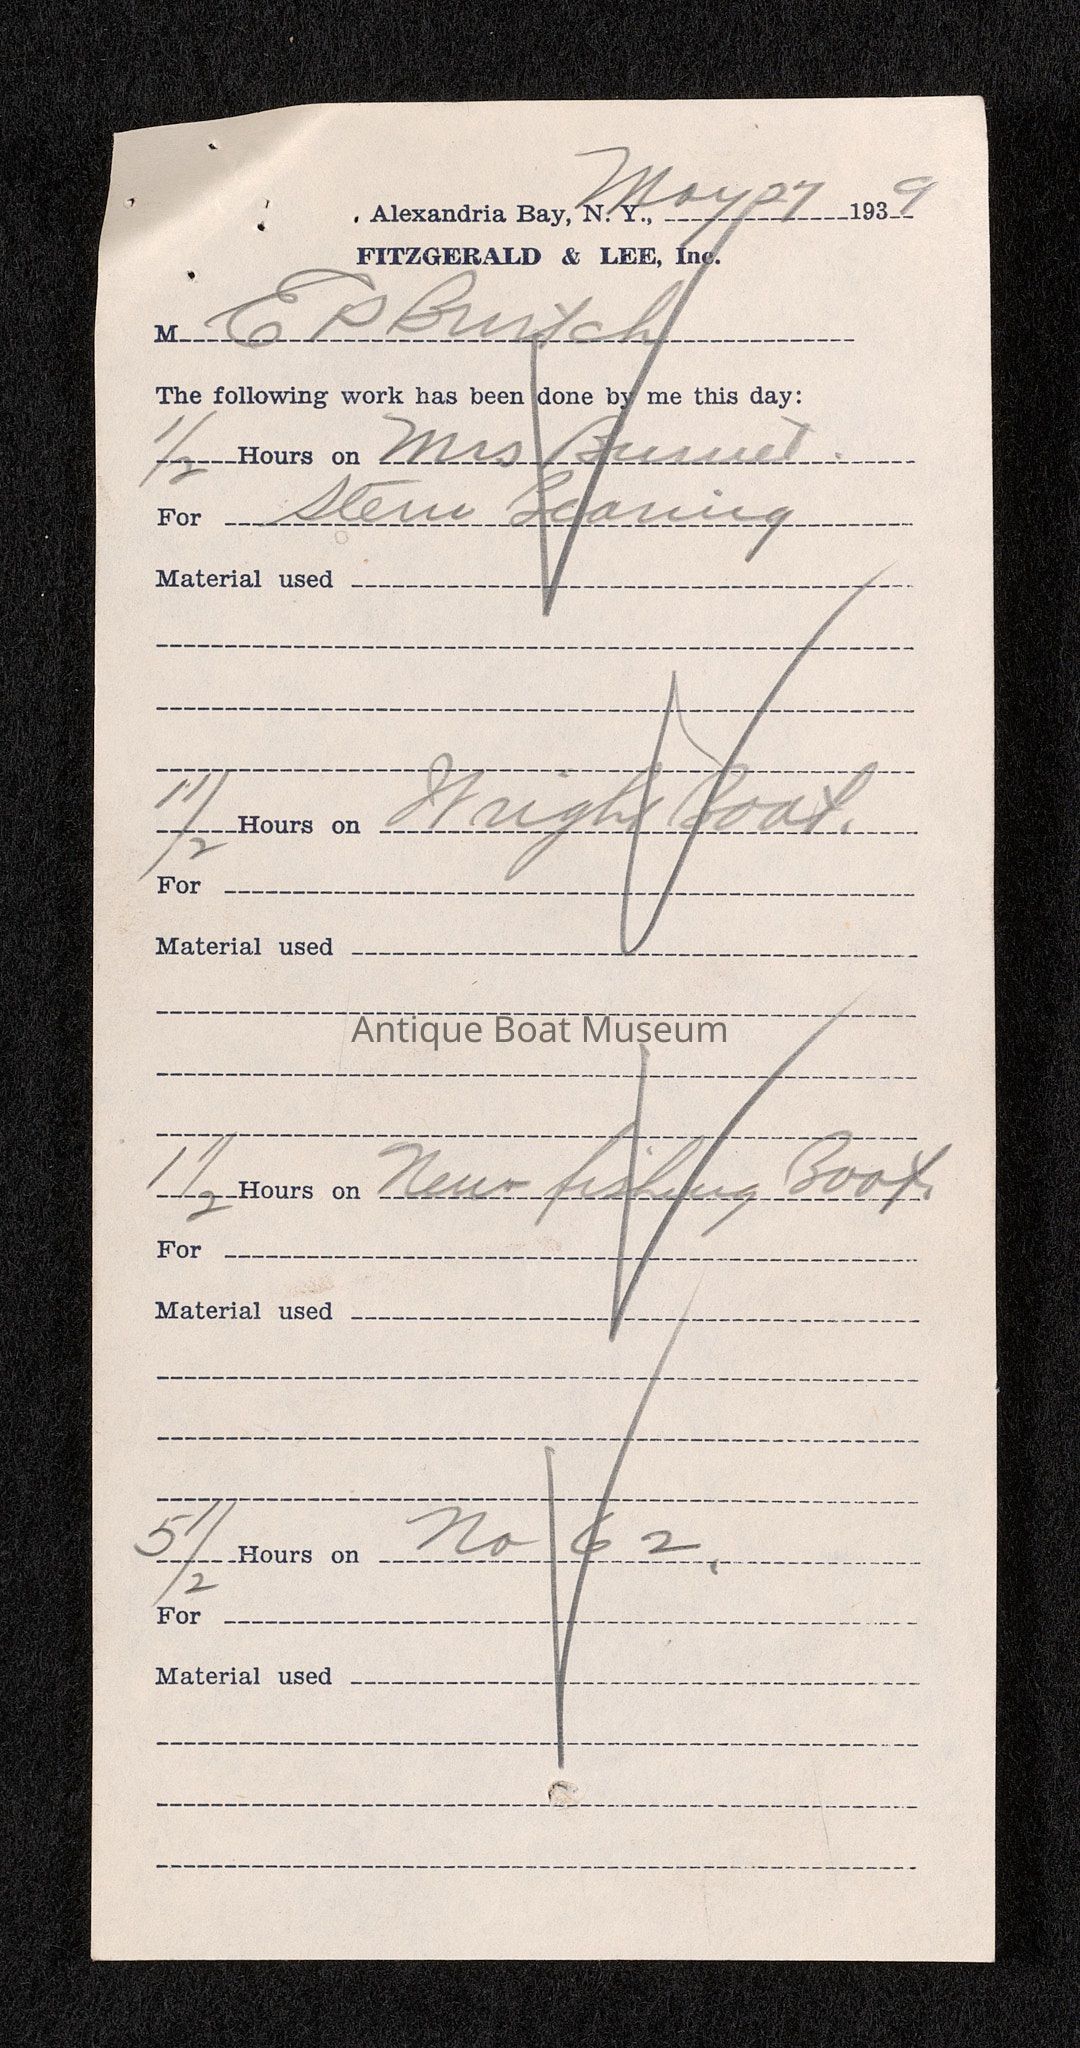 Alexandria Bay, N. Y., May 27 1939
FITZGERALD & LEE, Inc.
M E P Burtch
The following work has been done by me this day:
1/2 Hours on Mrs Burnet.
For Stern Bearing
Material used
1 1/2 Hours on Wright Boat.
For
Material used
Antique Boat Museum
1 1/2 Hours on New fishing Boat.
For
Material used
5 1/2 Hours on No 62.
For
Material used